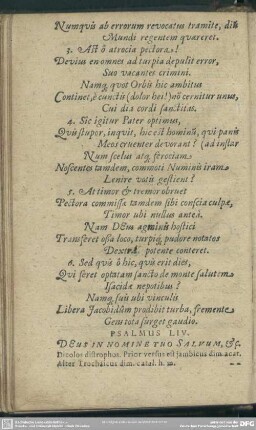 Numquis ab errorum revocatus tramite, diu
Mundi regentem quæreret.
3. Ast ô atrocia pectora!
Devius en omnes ad turpia depulit error,
Suo vacantes crimini.
Namq; quot Orbis hic ambitus
Continet, è cunctis (dolor hei!) nō cernitur unus,
Cui dia cordi sanctitas.
4. Sic igitur Pater optimus,
Quis stupor, inquit, hic est hominū, qui panis
Meos cruenter devorant? (ad instar
Num scelus atq; ferociam
Noscentes tandem, commoti Numinis iram
Lenire votis gestient?
5. At timor & tremor obruet
Pectora commissæ tandem sibi conscia culpæ,
Timor ubi nullus anteà.
Nam DEus agminis hostici
Transferet ossa loco, turpiq; pudore notatos
Dextrâ potente conteret.
6. Sed quis ô hic, quis erit dies,
Qui feret optatam sancto de monte salutem
Isacidæ nepotibus?
Namq; sui ubi vinculis
Libera Jacobidûm prodibit turba, fremente
Gens tota surget gaudio.
PSALMUS LIV.
DEus IN NOMINE TUO SALVUM, &c.
Dicolos distrophos. Prior versus est Jambicus dim. acat.
Alter Trochaicus dim. catal. h. m.